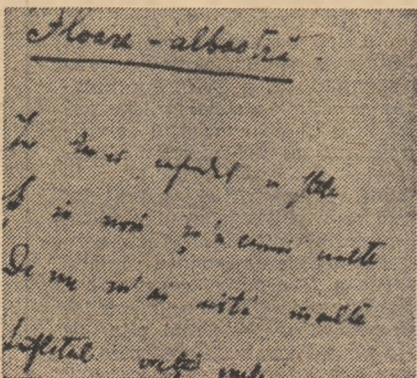 Floare-albastră
Iar te-ai cufundat în stele
Și în nori și'n ceruri nalte
De nu m'ai uita încalte
Sufletul vieței mele